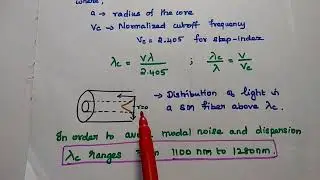 where,
a → radius of the core
Vc → Normalized cutoff frequency
Vc = 2.405 for step-index
λc = Vλ / 2.405 ; λc / λ = V / Vc
a
r=0
→ Distribution of light in
a SM fiber above λc.
In order to avoid modal noise and dispersion
λc ranges from 1100 nm to 1280nm.